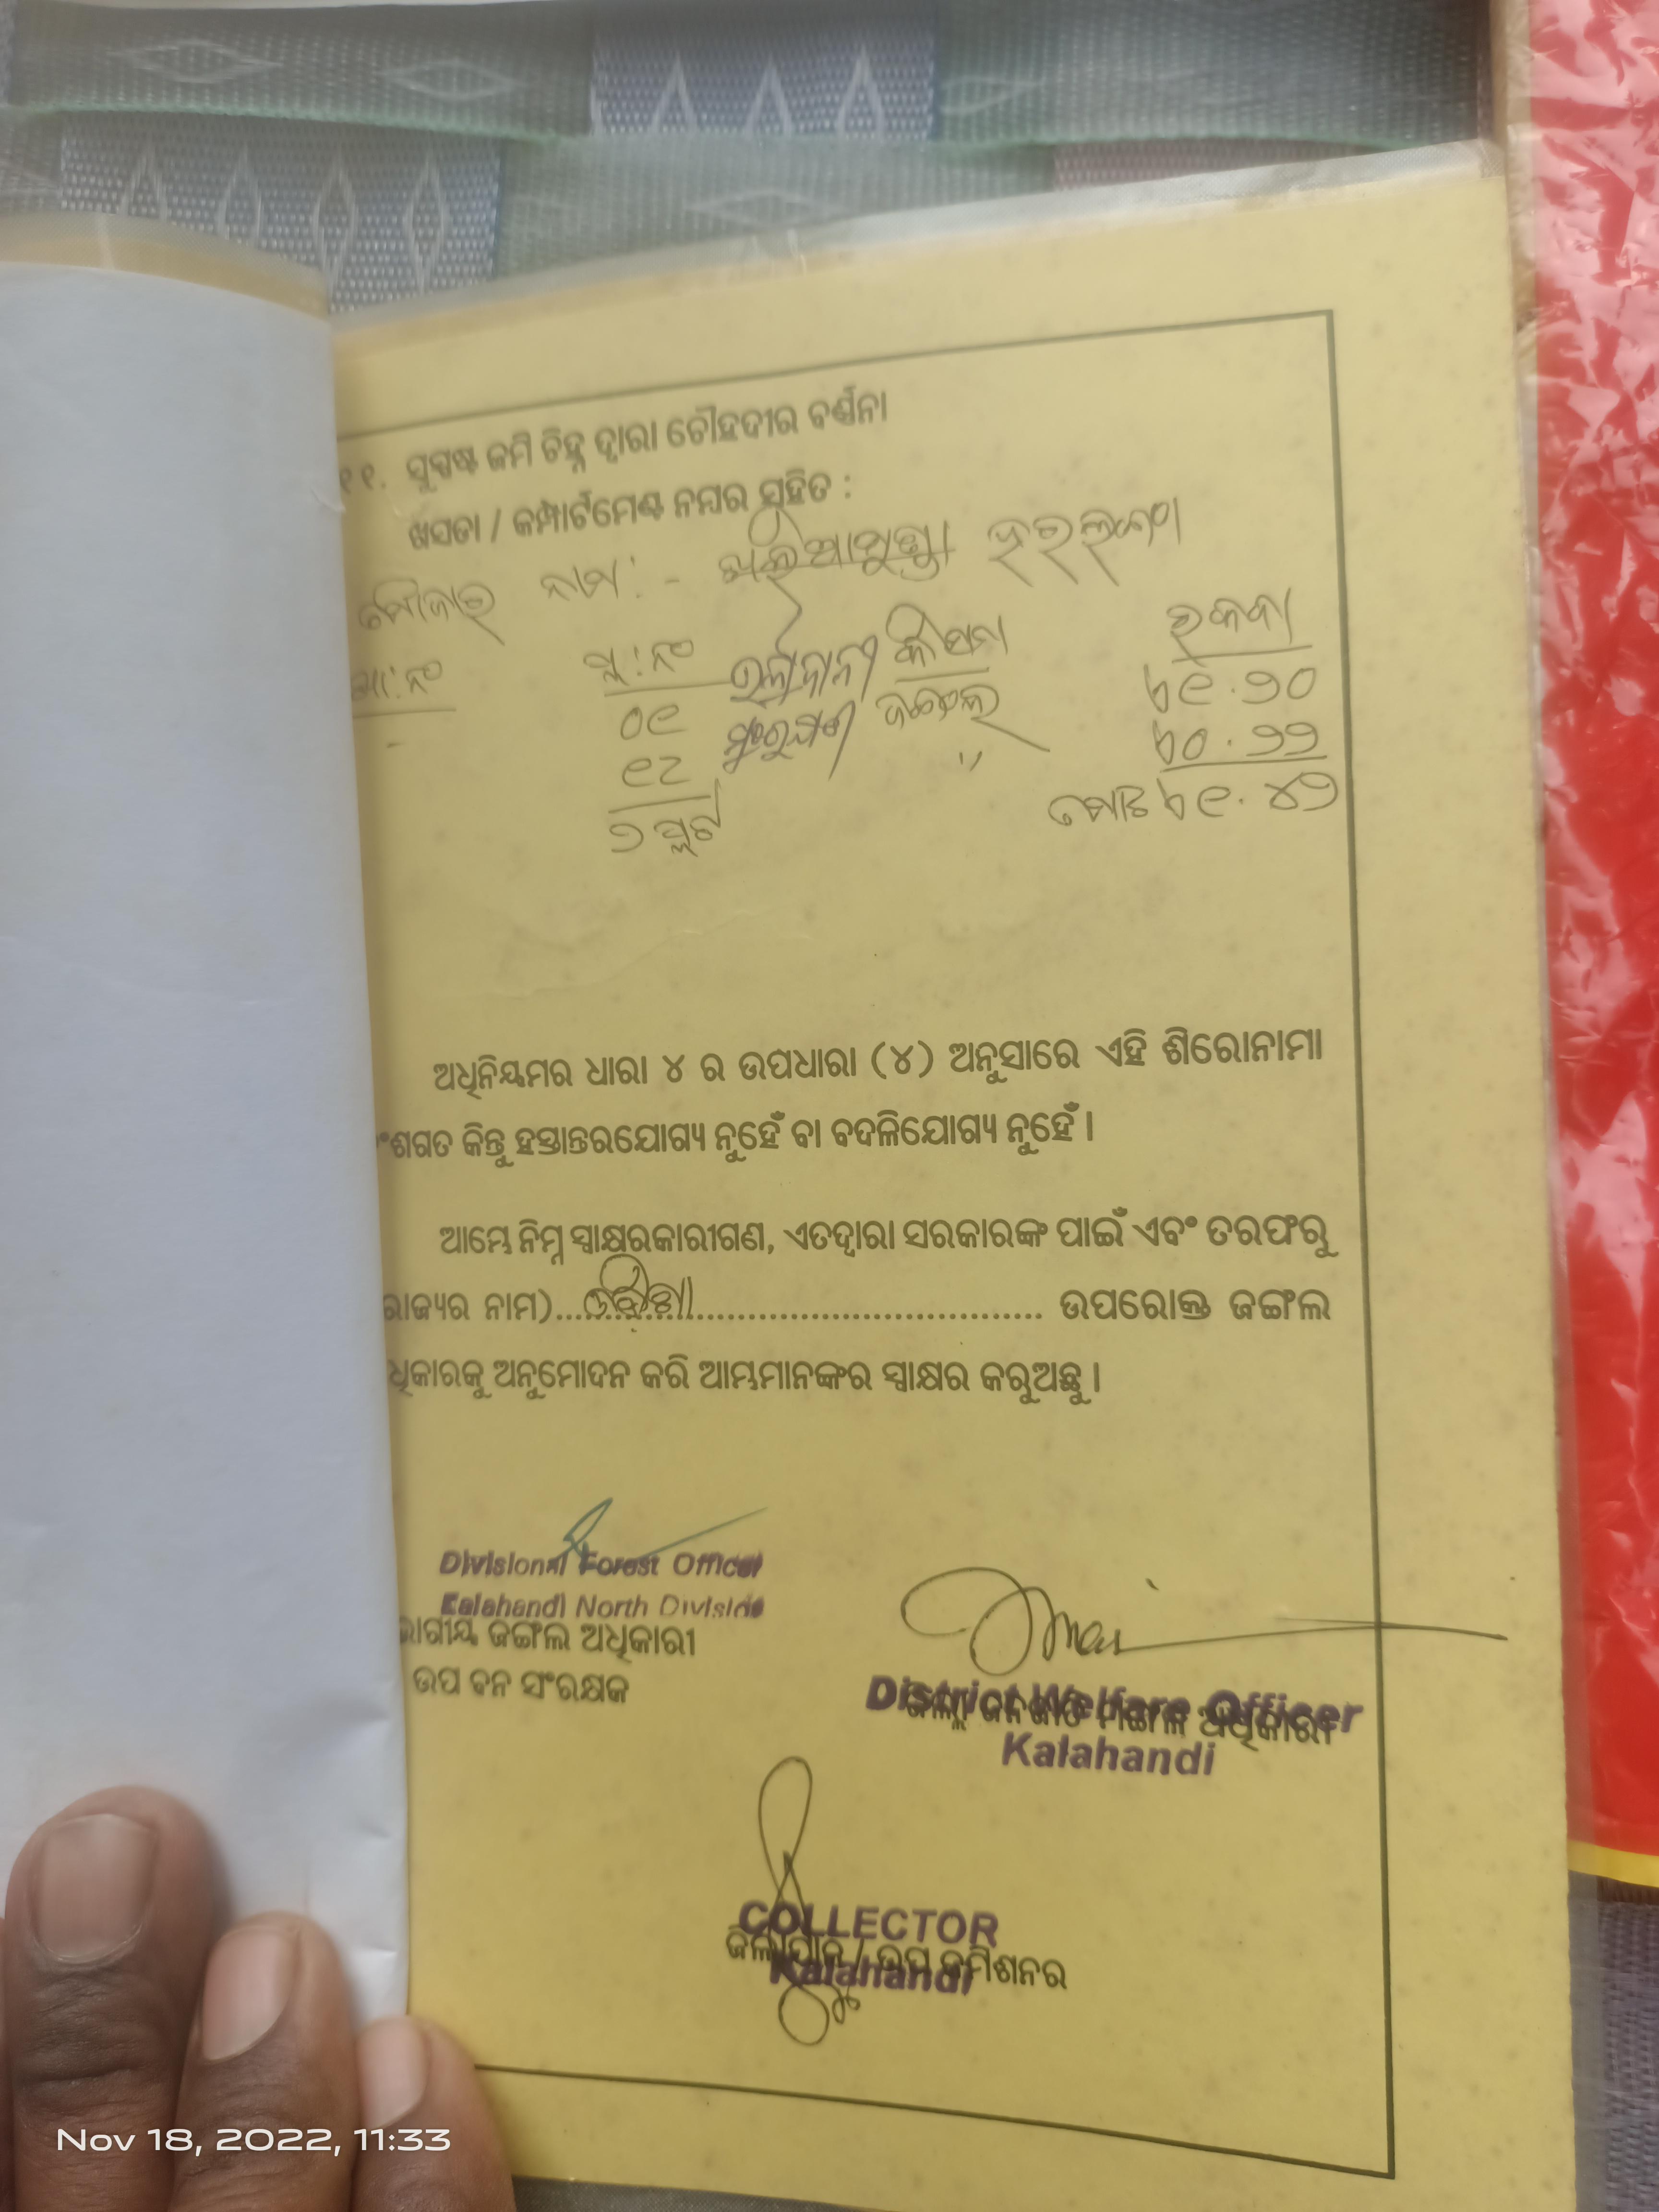 ୧୧. ସୁସ୍ପଷ୍ଟ ଜମି ଚିହ୍ନ ଦ୍ୱାରା ଚୌହଦୀର ବର୍ଣ୍ଣନା
ଖସଡା / କମ୍ପାର୍ଟମେଣ୍ଟ ନମ୍ବର ସହିତ :
ମୌଜାର ନାମ :-
ପ୍ଲ:ନଂ କିସମ ରକବା
୦୯ ଜଙ୍ଗଲ ୯.୨୦
୯୮ ,, ୦.୨୨
୨ ପ୍ଲଟ ମୋଟ ୯.୪୨
ଅଧିନିୟମର ଧାରା ୪ ର ଉପଧାରା (୪) ଅନୁସାରେ ଏହି ଶିରୋନାମା
ଂଶଗତ କିନ୍ତୁ ହସ୍ତାନ୍ତରଯୋଗ୍ୟ ନୁହେଁ ବା ବଦଳିଯୋଗ୍ୟ ନୁହେଁ ।
ଆମ୍ଭେ ନିମ୍ନ ସ୍ୱାକ୍ଷରକାରୀଗଣ, ଏତଦ୍ୱାରା ସରକାରଙ୍କ ପାଇଁ ଏବଂ ତରଫରୁ
ରାଜ୍ୟର ନାମ)...ଓଡ଼ିଶା................................... ଉପରୋକ୍ତ ଜଙ୍ଗଲ
ଧିକାରକୁ ଅନୁମୋଦନ କରି ଆମ୍ଭମାନଙ୍କର ସ୍ୱାକ୍ଷର କରୁଅଛୁ ।
Divisional Forest Officer
Kalahandi North Division
ଭାଗୀୟ ଜଙ୍ଗଲ ଅଧିକାରୀ
ଉପ ବନ ସଂରକ୍ଷକ
District Welfare Officer
ଜିଲ୍ଲା ଜନଜାତି ମଙ୍ଗଳ ଅଧିକାରୀ
Kalahandi
COLLECTOR
ଜିଲ୍ଲାପାଳ / ଉପ କମିଶନର
Kalahandi
Nov 18, 2022, 11:33